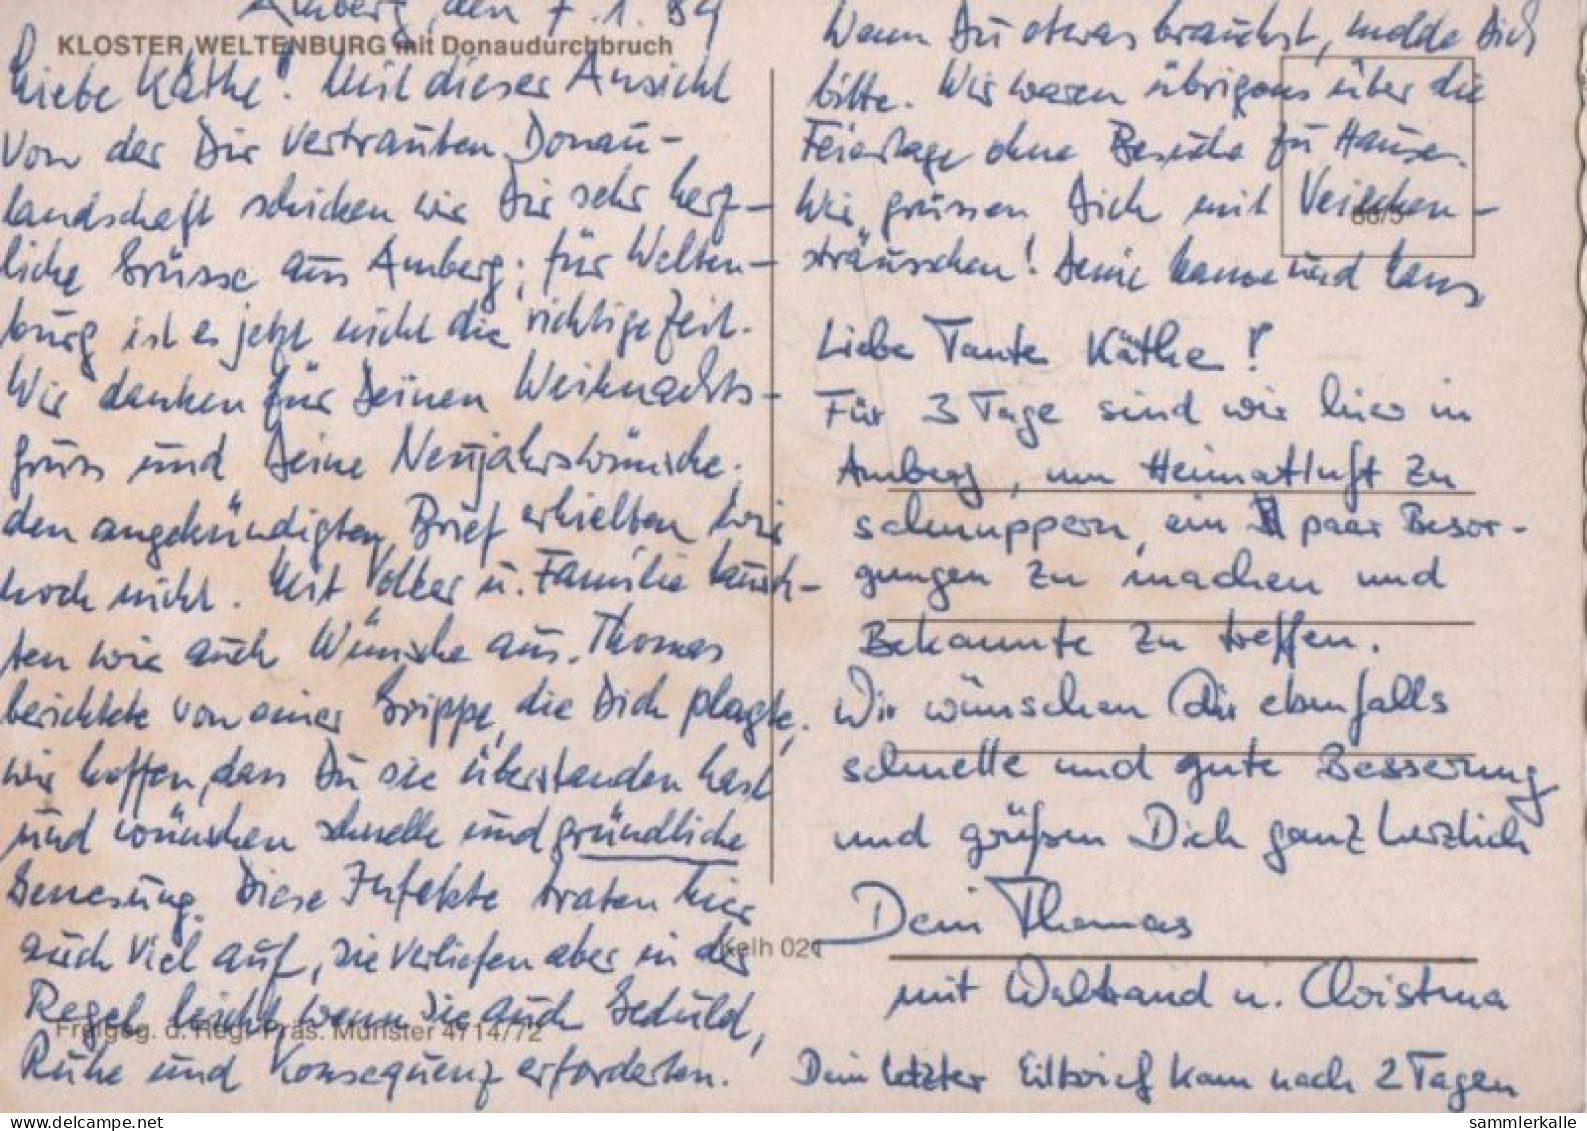 Amberg, den 7.1.89
KLOSTER WELTENBURG mit Donaudurchbruch
Liebe Käthe! Mit dieser Ansicht
von der Dir vertrauten Donau-
landschaft schicken wir Dir sehr herz-
liche Grüsse aus Amberg; für Welten-
burg ist es jetzt nicht die richtige Zeit.
Wir danken für Deinen Weihnachts-
gruss und Deine Neujahrswünsche.
den angekündigten Brief erhielten wir
noch nicht. Mit Volker u. Familie tausch-
ten wir auch Wünsche aus. Thomas
berichtete von einer Grippe, die Dich plagte,
wir hoffen, dass Du sie überstanden hast
und wünschen schnelle und gründliche
Genesung. Diese Infekte traten hier
auch viel auf, sie verliefen aber in der
Regel leicht wenn sie auch Geduld,
Freigeg. d. Reg. Präs. Münster 4714/72
Ruhe und Konsequenz erforderten.
Kelh 021
Wenn Du etwas brauchst, melde Dich
bitte. Wir waren übrigens über die
Feiertage ohne Besuche zu Hause.
Wir grüssen Dich mit Veilchen-
sträusschen! Deine Hanne und Hans
Liebe Tante Käthe!
Für 3 Tage sind wir hier in
Amberg, um Heimatluft zu
schnuppern, ein paar Besor-
gungen zu machen und
Bekannte zu treffen.
Wir wünschen Dir ebenfalls
schnelle und gute Besserung
und grüßen Dich ganz herzlich
Dein Thomas
mit Waltraud u. Christina
Dein letzter Eilbrief kam nach 2 Tagen